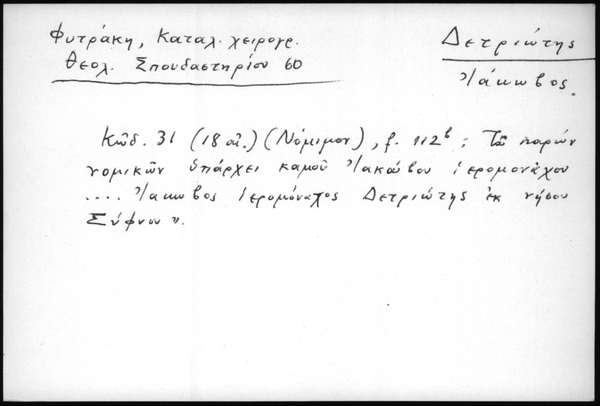 Φυτράκη, Καταλ. χειρογρ.
Θεολ. Σπουδαστηρίου 60
Δετριώτης
Ἰάκωβος.
Κῶδ. 31 (18 αἰ.) (Νόμιμον), f. 112b : Τὸ παρὼν
νομικῶν ὑπάρχει καμοῦ Ἰακώβου ἱερομονάχου
.... Ἰάκωβος ἱερομόναχος Δετριώτης ἐκ νήσου
Σύφνου".